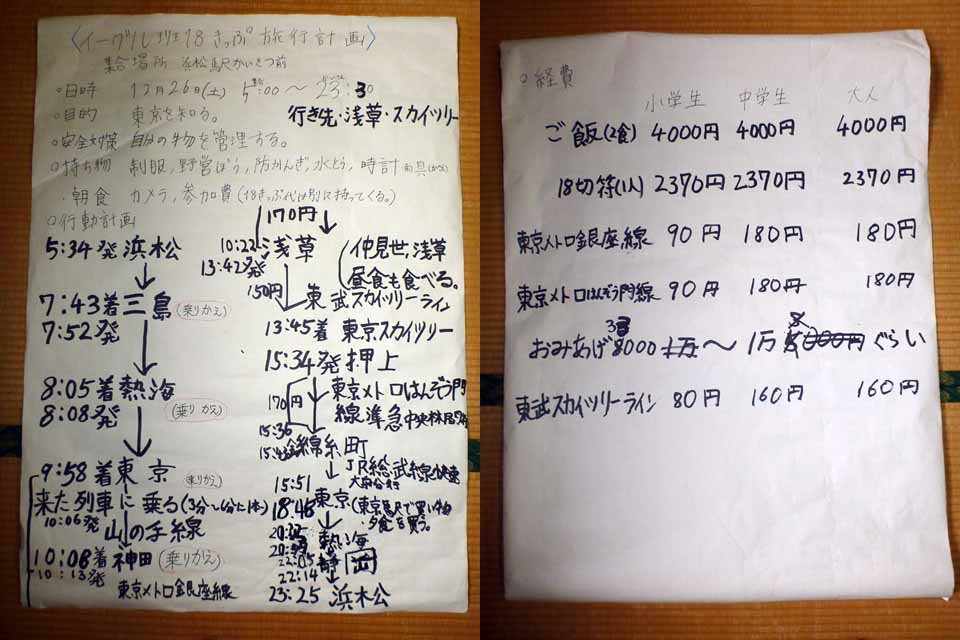 〈イーグル班18きっぷ旅行計画〉
集合場所 浜松駅かいさつ前
○日時 12月26日(土) 5:00〜23:30
○目的 東京を知る。
行き先・浅草・スカイツリー
○安全対策 自分の物を管理する。
○持ち物 制服,野営ぼう,防かんぎ,水とう,時計
・朝食 カメラ,参加費(18きっぷ代は別に持ってくる。)
○行動計画
5:34発浜松
7:43着三島(乗りかえ)
7:52発
8:05着熱海
8:08発(乗りかえ)
9:58着東京(乗りかえ)
来た列車に乗る(3分〜4分に1本)
10:06発 山の手線
10:08着神田(乗りかえ)
10:13発
東京メトロ銀座線
170円
10:22 浅草
13:42発
(仲見世,浅草
昼食も食べる。
150円 東武スカイツリーライン
13:45着 東京スカイツリー
15:34発 押上
170円 東京メトロはんぞう門
線準急中央林間行
15:36
錦糸町
JR総武線快速
15:51
18:46 東京(東京駅で買い物
・夕食を買う。
熱海
22:05 静岡
22:14
23:25 浜松
○経費
小学生 中学生 大人
ご飯(2食) 4000円 4000円 4000円
18切符(1人) 2370円 2370円 2370円
東京メトロ銀座線 90円 180円 180円
東京メトロはんぞう門線 90円 180円 180円
おみあげ 3000 〜 1万 ぐらい
東武スカイツリーライン 80円 160円 160円